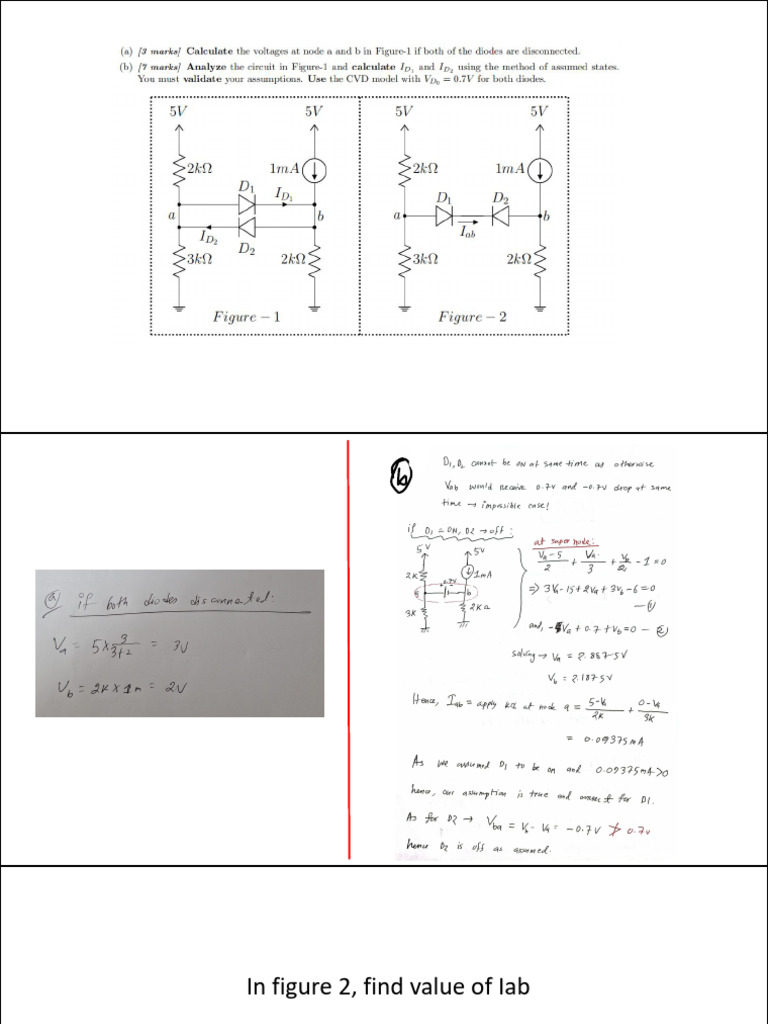 (a) [3 marks] Calculate the voltages at node a and b in Figure-1 if both of the diodes are disconnected.
(b) [7 marks] Analyze the circuit in Figure-1 and calculate I_D1 and I_D2 using the method of assumed states.
You must validate your assumptions. Use the CVD model with V_D0 = 0.7V for both diodes.
5V 5V
2kΩ 1mA
D1 I_D1
a b
I_D2 D2
3kΩ 2kΩ
Figure − 1
5V 5V
2kΩ 1mA
D1 D2
a b
I_ab
3kΩ 2kΩ
Figure − 2
(a) if both diodes disconnected:
Va = 5 × 3/(3+2) = 3V
Vb = 2k × 1m = 2V
(b)
D1, D2 cannot be on at same time as otherwise
Vab would receive 0.7V and -0.7V drop at same
time → impossible case!
if D1 = ON, D2 → off:
5V 5V
2K 1mA
0.7V
b
3K 2K
at super node:
(Va-5)/2 + Va/3 + Vb/2 - 1 = 0
⇒ 3Va - 15 + 2Va + 3Vb - 6 = 0
— (1)
and, -Va + 0.7 + Vb = 0 — (2)
solving → Va = 2.8875V
Vb = 2.1875V
Hence, Iab = apply KCL at node a = (5-Va)/2K + (0-Va)/3K
= 0.09375mA
As we assumed D1 to be on and 0.09375mA>0
hence, our assumption is true and correct for D1.
As for D2 → Vba = Vb - Va = -0.7V ≯ 0.7v
hence D2 is off as assumed.
In figure 2, find value of Iab